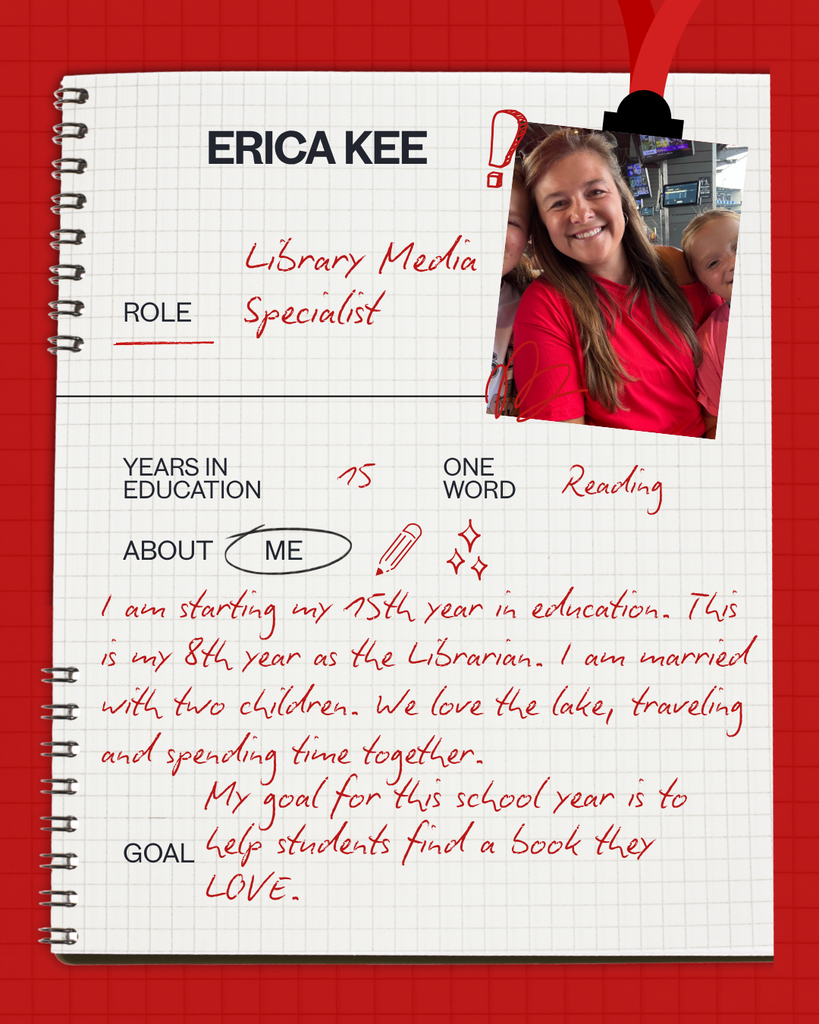 ERICA KEE
Library Media
Specialist
ROLE
YEARS IN
EDUCATION
15
ONE
WORD
Reading
ABOUT ME
I am starting my 15th year in education. This
is my 8th year as the Librarian. I am married
with two children. We love the lake, traveling
and spending time together.
My goal for this school year is to
GOAL help students find a book they
LOVE.